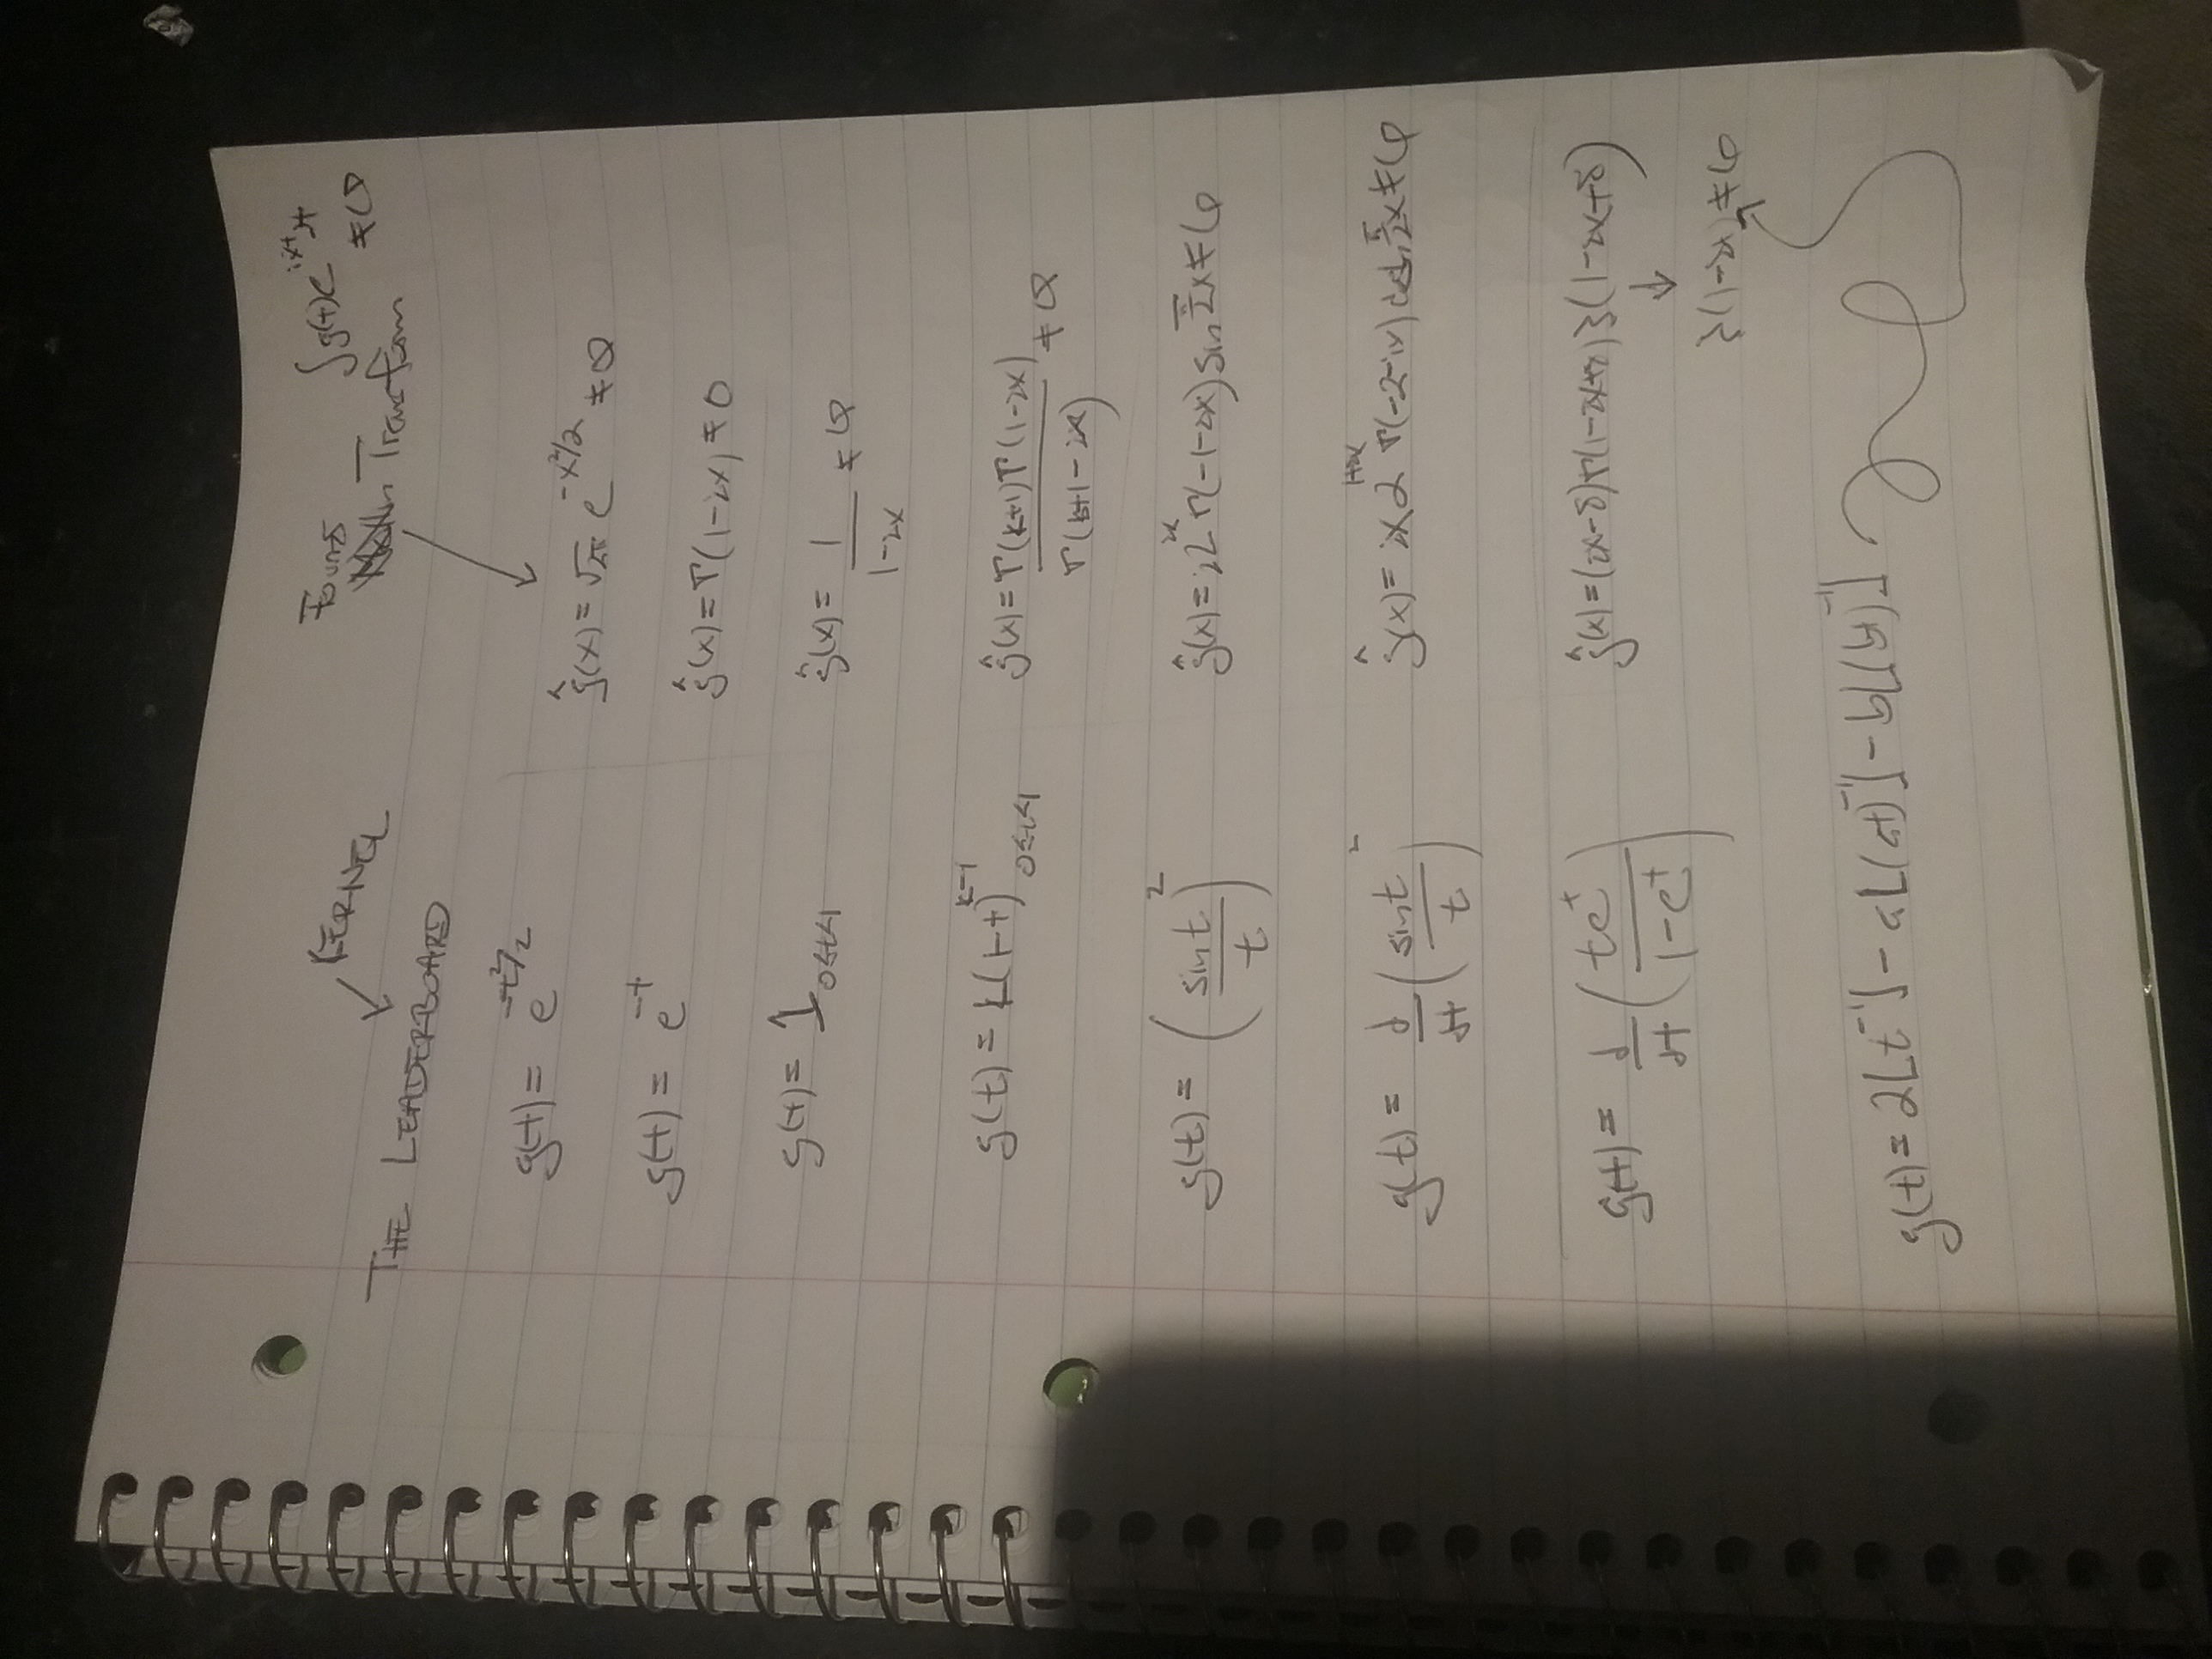 KERNEL
THE LEADERBOARD
Fourier Transform ∫g(t)e^{ixt}dt ≠0
g(t) = e^{-t²/2}   ĝ(x) = √2π e^{-x²/2} ≠0
g(t) = e^{-t}   ĝ(x) = Γ(1-ix) ≠ 0
g(t) = 1_{0<t<1}   ĝ(x) = 1/(1-ix) ≠0
g(t) = k(1-t)^{k-1}_{0<t<1}   ĝ(x) = Γ(k+1)Γ(1-ix)/Γ(k+1-ix) ≠0
g(t) = (sin t/t)²   ĝ(x) = i2^{ix} Γ(-1-ix) sin π/2 x ≠0
g(t) = d/dt (sin t/t)²   ĝ(x) = ix 2^{1+ix} Γ(-2-ix) π/2 x ≠0
g(t) = d/dt (te^t/(1-e^t))   ĝ(x) = (ix-δ)Γ(1-ix+δ)ζ(1-ix+δ)
↓
ζ(1-ix) ≠0
g(t) = 2⌊t^{-1}⌋ - a⌊(at)^{-1}⌋ - b⌊(bt)^{-1}⌋